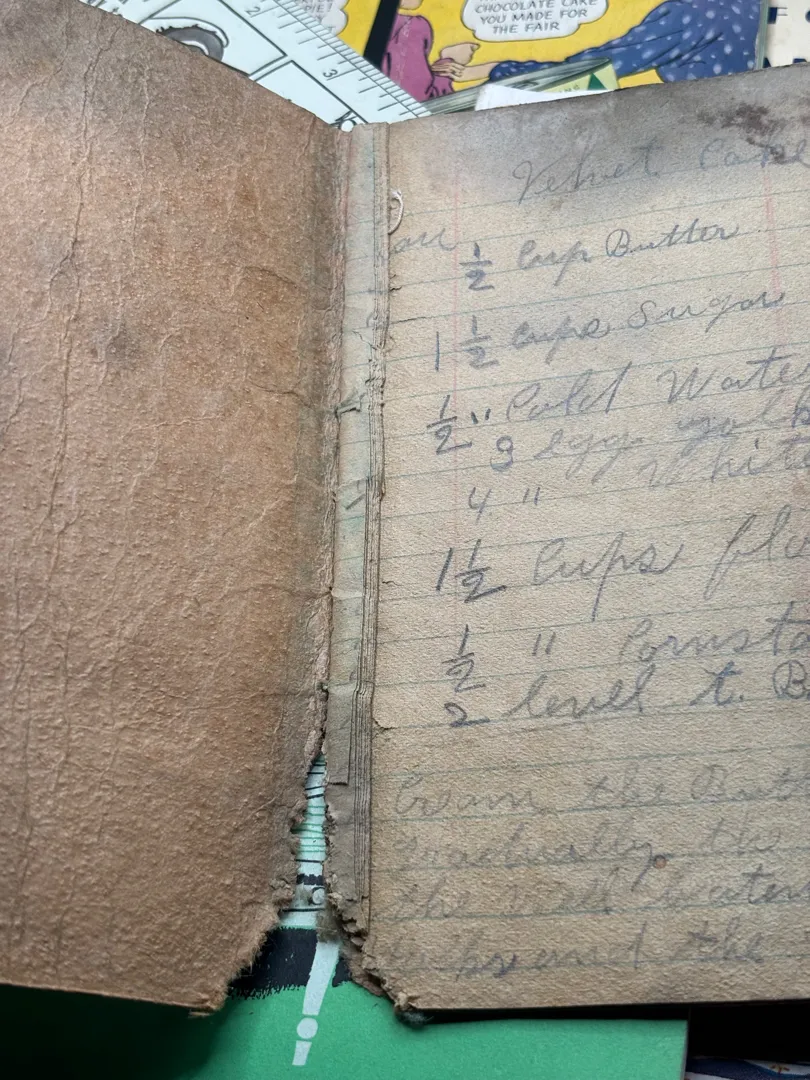 CHOCOLATE CAKE
YOU MADE FOR
THE FAIR
2
3
Velvet Cake
1/2 Cup Butter
1 1/2 Cups Sugar
1/2 " Cold Wate
3 egg yolk
4 " Whit
1 1/2 Cups flo
1/2 " Cornsta
2 level t. B
Cream the Butt
gradually
the well beaten
the